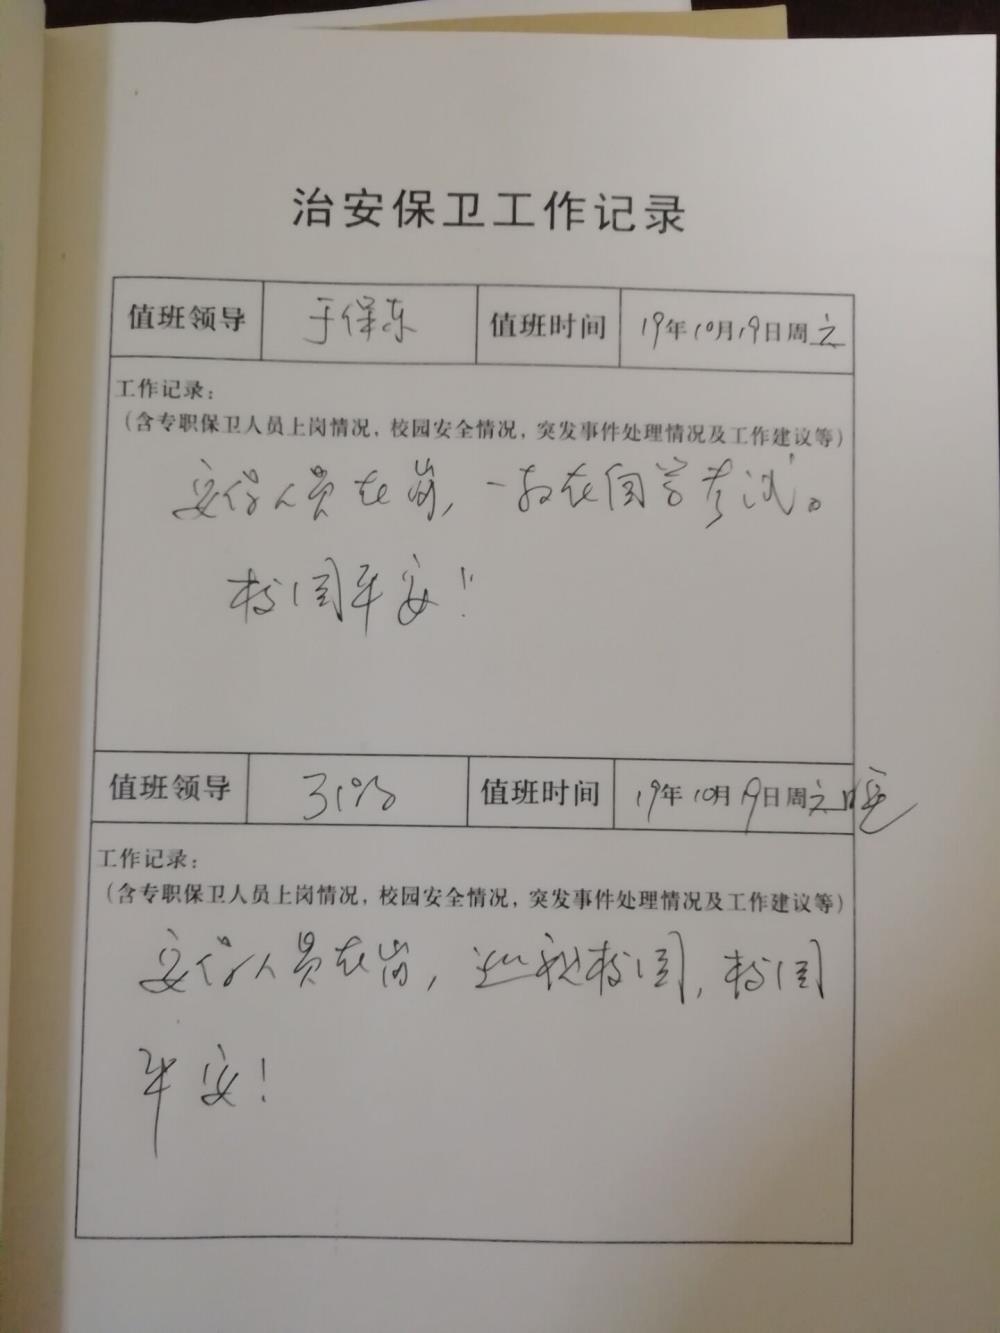 治安保卫工作记录
值班领导 于保东 值班时间 19年10月19日周六
工作记录：
（含专职保卫人员上岗情况，校园安全情况，突发事件处理情况及工作建议等）
安保人员在岗，一教在自学考试。
校园平安！
值班领导 值班时间 19年10月19日周六晚
工作记录：
（含专职保卫人员上岗情况，校园安全情况，突发事件处理情况及工作建议等）
安保人员在岗，巡视校园，校园
平安！